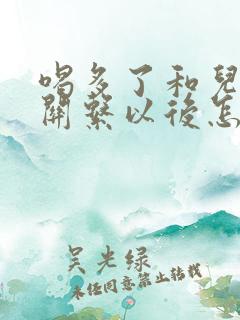 喝多了和兒
關繫以後怎
吴光绿
未经同意禁止转载